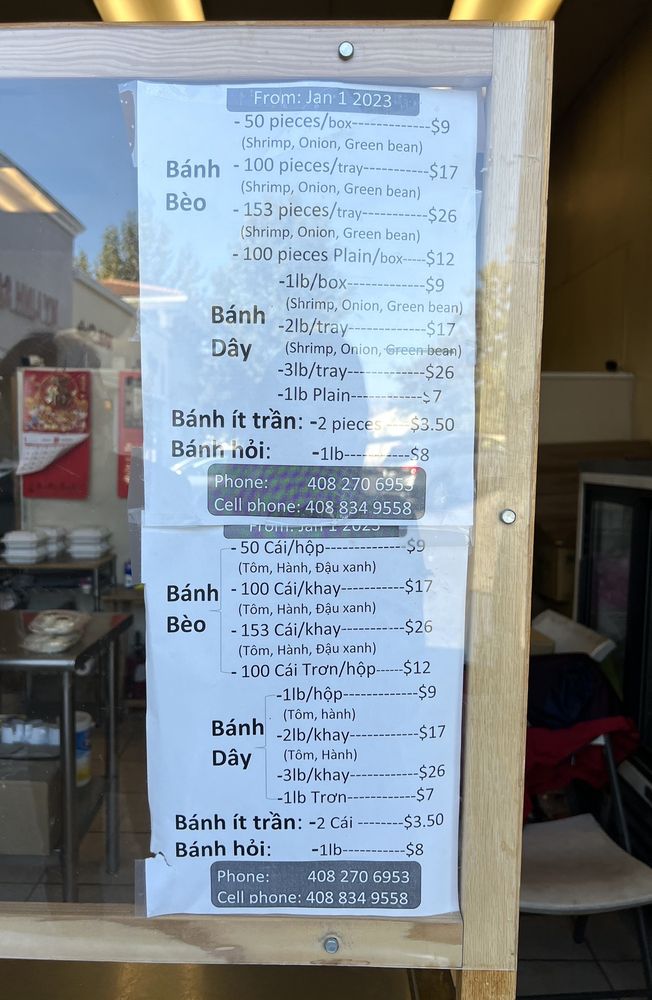 From: Jan 1 2023
- 50 pieces/box-------------$9
(Shrimp, Onion, Green bean)
Bánh Bèo
- 100 pieces/tray----------$17
(Shrimp, Onion, Green bean)
- 153 pieces/tray----------$26
(Shrimp, Onion, Green bean)
- 100 pieces Plain/box-----$12
-1lb/box---------------$9
(Shrimp, Onion, Green bean)
Bánh Dây
-2lb/tray-------------$17
(Shrimp, Onion, Green bean)
-3lb/tray-------------$26
-1lb Plain------------$7
Bánh ít trần: -2 pieces-----$3.50
Bánh hỏi: -1lb-----------$8
Phone: 408 270 6953
Cell phone: 408 834 9558
From: Jan 1 2023
- 50 Cái/hộp-------------$9
(Tôm, Hành, Đậu xanh)
Bánh Bèo
- 100 Cái/khay-----------$17
(Tôm, Hành, Đậu xanh)
- 153 Cái/khay-----------$26
(Tôm, Hành, Đậu xanh)
- 100 Cái Trơn/hộp-----$12
-1lb/hộp-------------$9
(Tôm, hành)
Bánh Dây
-2lb/khay-----------$17
(Tôm, Hành)
-3lb/khay-----------$26
-1lb Trơn-----------$7
Bánh ít trần: -2 Cái --------$3.50
Bánh hỏi: -1lb-----------$8
Phone: 408 270 6953
Cell phone: 408 834 9558